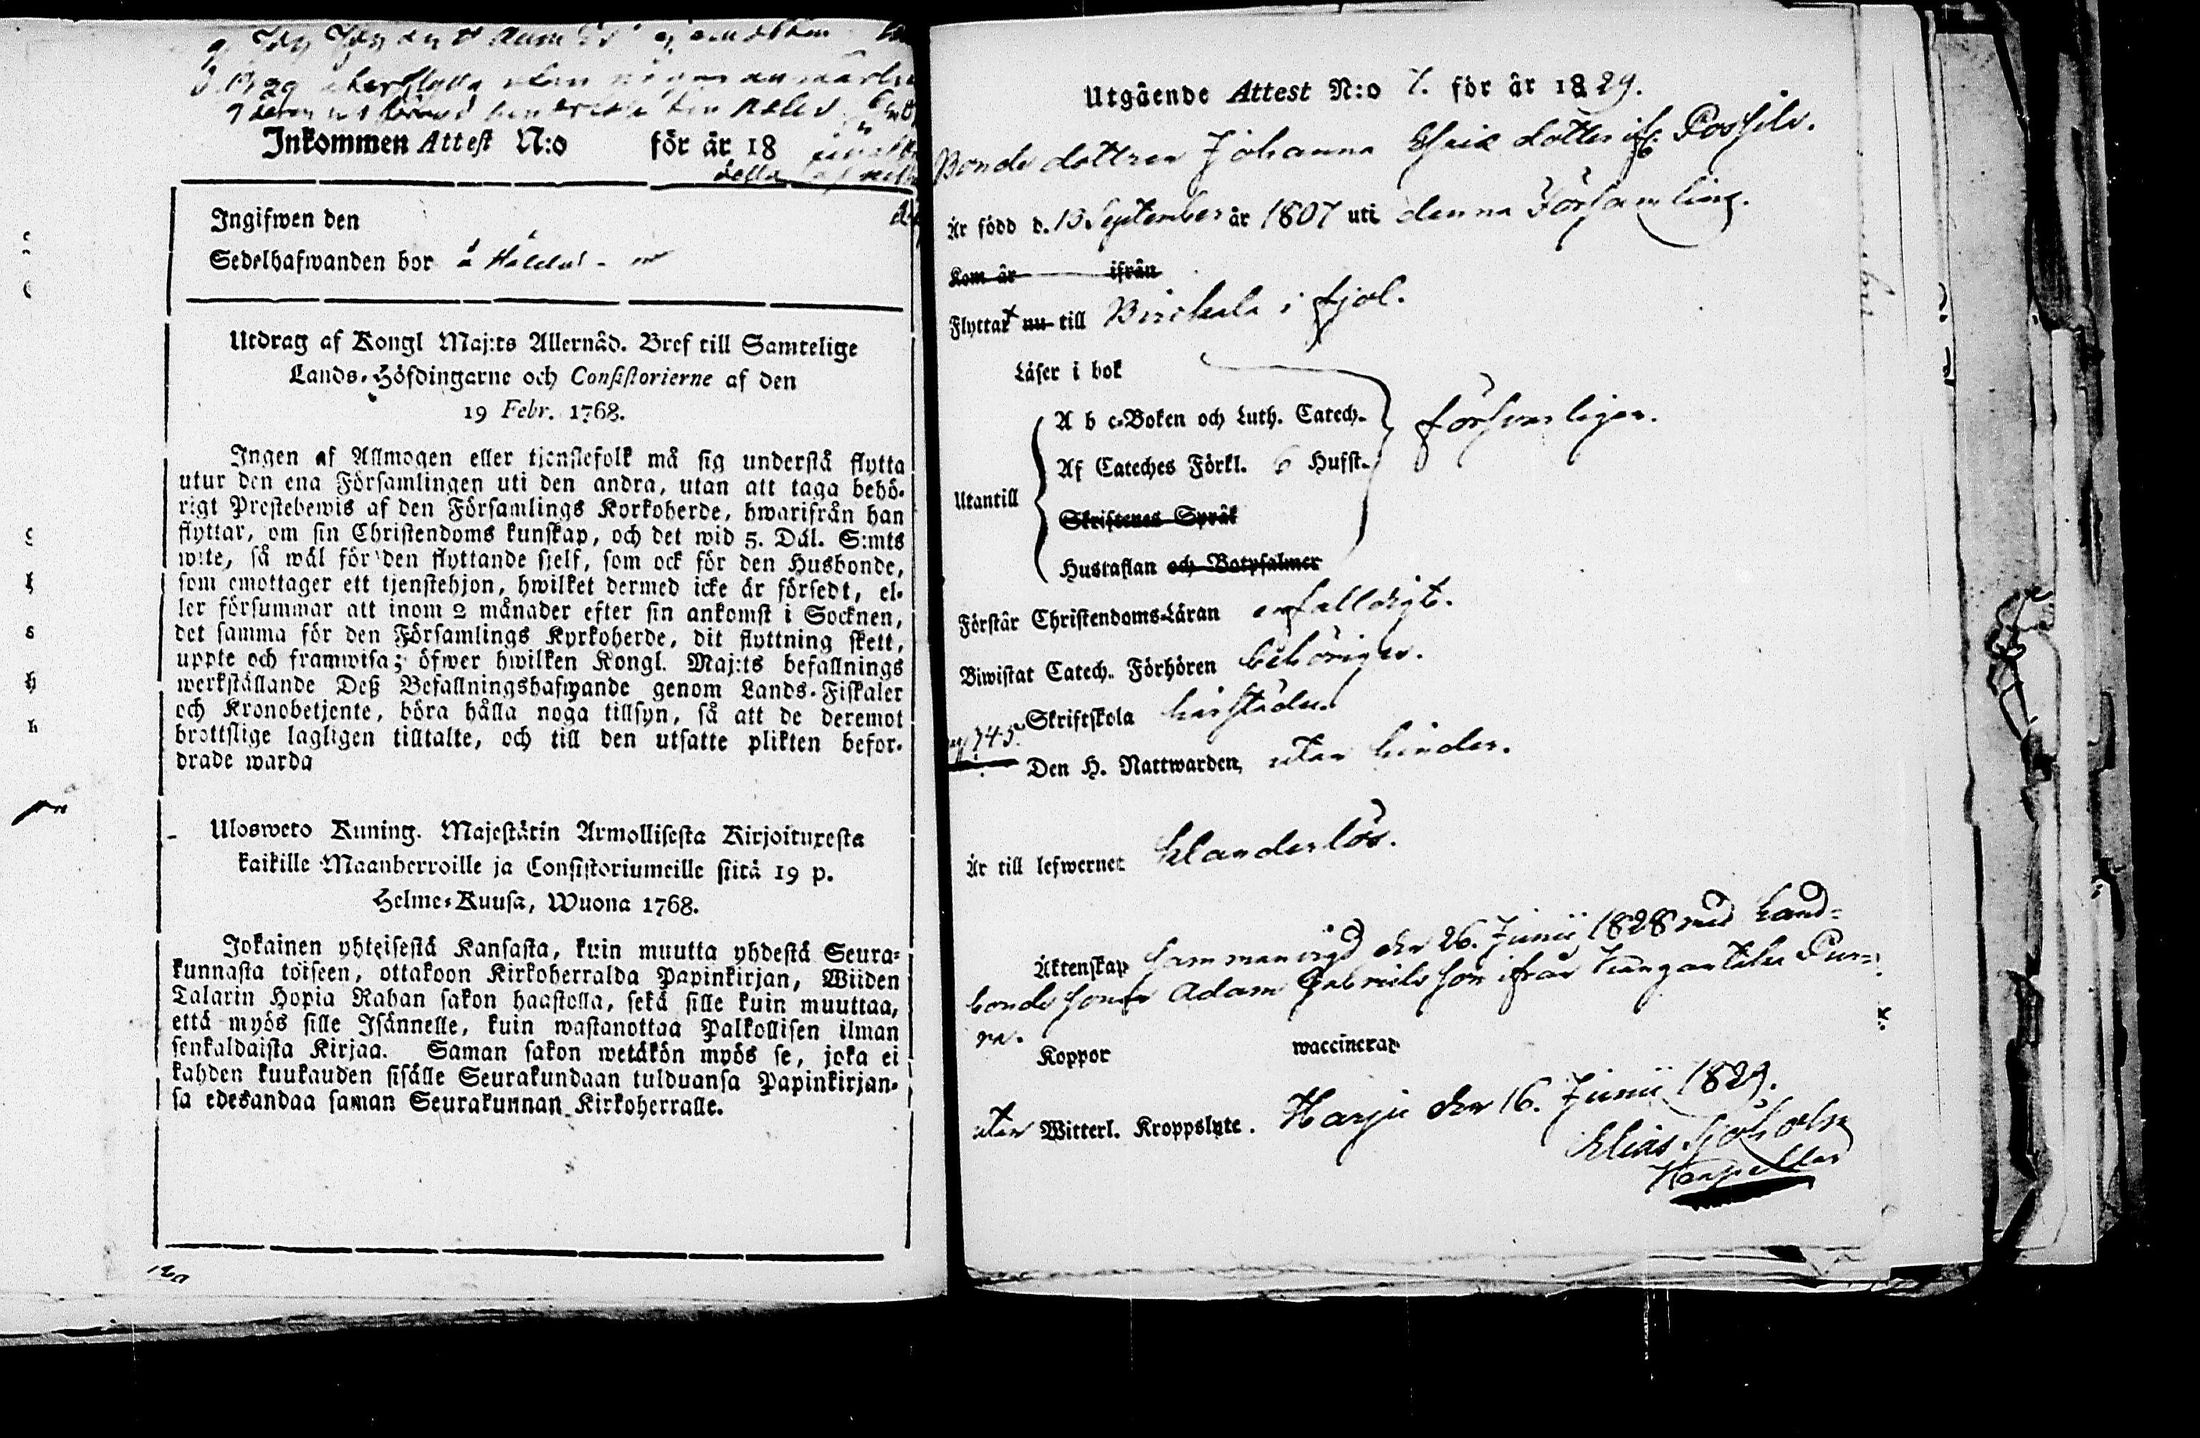 Inkommen Attest N:o för år 18
della
Ingifwen den
Sedelhafwanden bor å
Utdrag af Kongl Maj:ts Allernåd. Bref till Samtelige
Lands-Höfdingarne och Consistorierne af den
19 Febr. 1768.
Ingen af Allmogen eller tjenstefolk må sig understå flytta
utur den ena Församlingen uti den andra, utan att taga behö-
rigt Prestebewis af den Församlings Korkoherde, hwarifrån han
flyttar, om sin Christendoms kunskap, och det wid 5. Dal. S:mts
wite, så wäl för den flyttande sjelf, som ock för den Husbonde,
som emottager ett tjenstehjon, hwilket dermed icke är försedt, el-
ler försummar att inom 2 månader efter sin ankomst i Socknen,
det samma för den Församlings Kyrkoherde, dit flyttning skett,
uppte och framwisa; öfwer hwilken Kongl. Maj:ts befallnings
werkställande Deß Befallningshafwande genom Lands-Fiskaler
och Kronobetjente, böra hålla noga tillsyn, så att de deremot
brottslige lagligen tilltalte, och till den utsatte plikten befor-
drade warda
Ulosweto Kuning. Majestätin Armollisesta Kirjoituxesta
kaikille Maanherroille ja Consistoriumeille siitä 19 p.
Helme-Kuusa, Wuona 1768.
Jokainen yhteisestä Kansasta, kuin muutta yhdestä Seura-
kunnasta toiseen, ottakoon Kirkoherralda Papinkirjan, Wiiden
Talarin Hopia Rahan sakon haastolla, sekä sille kuin muuttaa,
että myös sille Isännelle, kuin wastanottaa Palkollisen ilman
senkaldaista Kirjaa. Saman sakon wetäkön myös se, joka ei
kahden kuukauden sisälle Seurakundaan tulduansa Papinkirjan-
sa edesandaa saman Seurakunnan Kirkoherralle.
Utgående Attest N:o 7. för år 1829.
Bonde dottren Johanna Ersdotter Possila.
Är född d. 13 September år 1807 uti denna Församling.
Kom år ifrån
Flyttat nu till Birchala i fjol.
Läser i bok
A b c-Boken och Luth. Catech.
försvarligen.
Af Cateches Förkl. 6 Hufst.
Utantill
Skriftenes Språk
Hustaflan och Botpsalmer
Förstår Christendoms-Läran enfalldigt.
Biwistat Catech. Förhören behörigen.
Skriftskola härstädes.
Den H. Nattwarden, utan hinder.
Är till lefwernet klanderlös.
Äktenskap sammanvigd den 26. Junii 1828 med Land-
bonde sonen Adam Gabrielsson ifrån
Koppor waccinerad
utan Witterl. Kroppslyte. Harju den 16. Junii 1829.
Elias Sjöholm
Kapellan